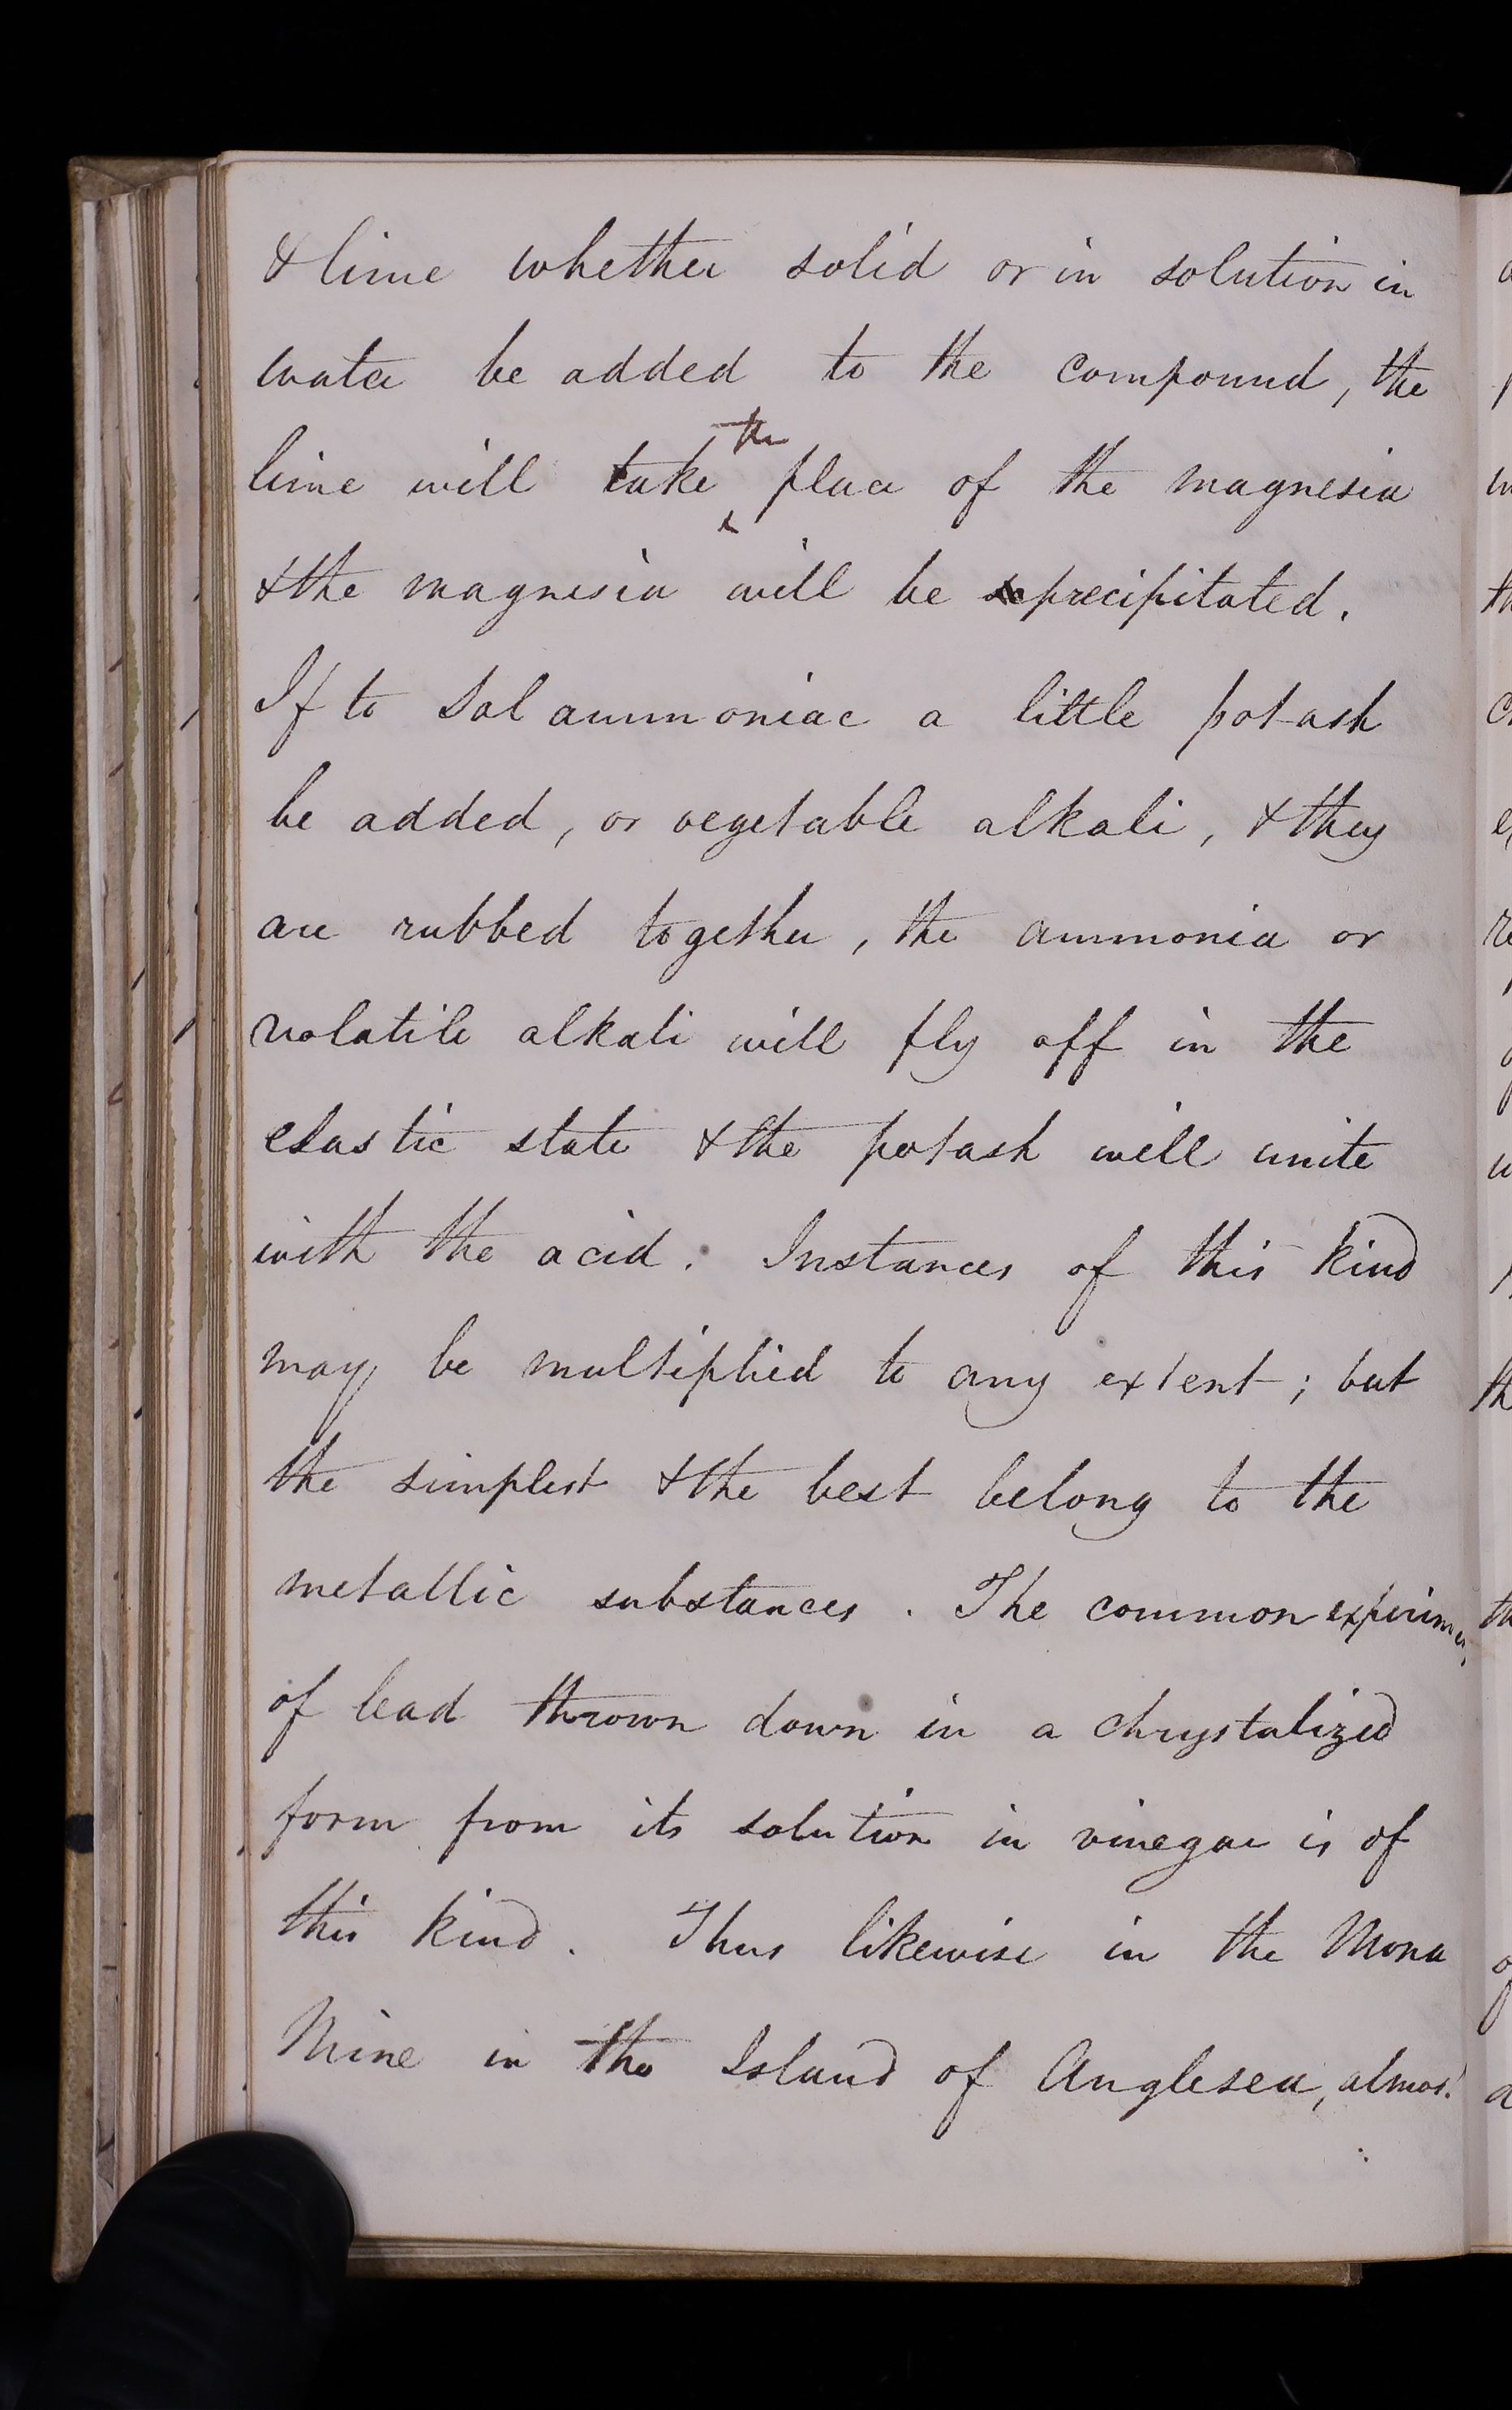 & lime whether solid or in solution in
water be added to the compound, the
lime will take the place of the magnesia
& the magnesia will be precipitated.
If to Sal ammoniac a little potash
be added, or vegetable alkali, & they
are rubbed together, the ammonia or
volatile alkali will fly off in the
elastic state & the potash will unite
with the acid. Instances of this kind
may be multiplied to any extent; but
the simplest & the best belong to the
metallic substances. The common
of lead thrown down in a chrystalized
form from its solution in vinegar is of
this kind. Thus likewise in the Mona
Mine in the Island of Anglesea, almost